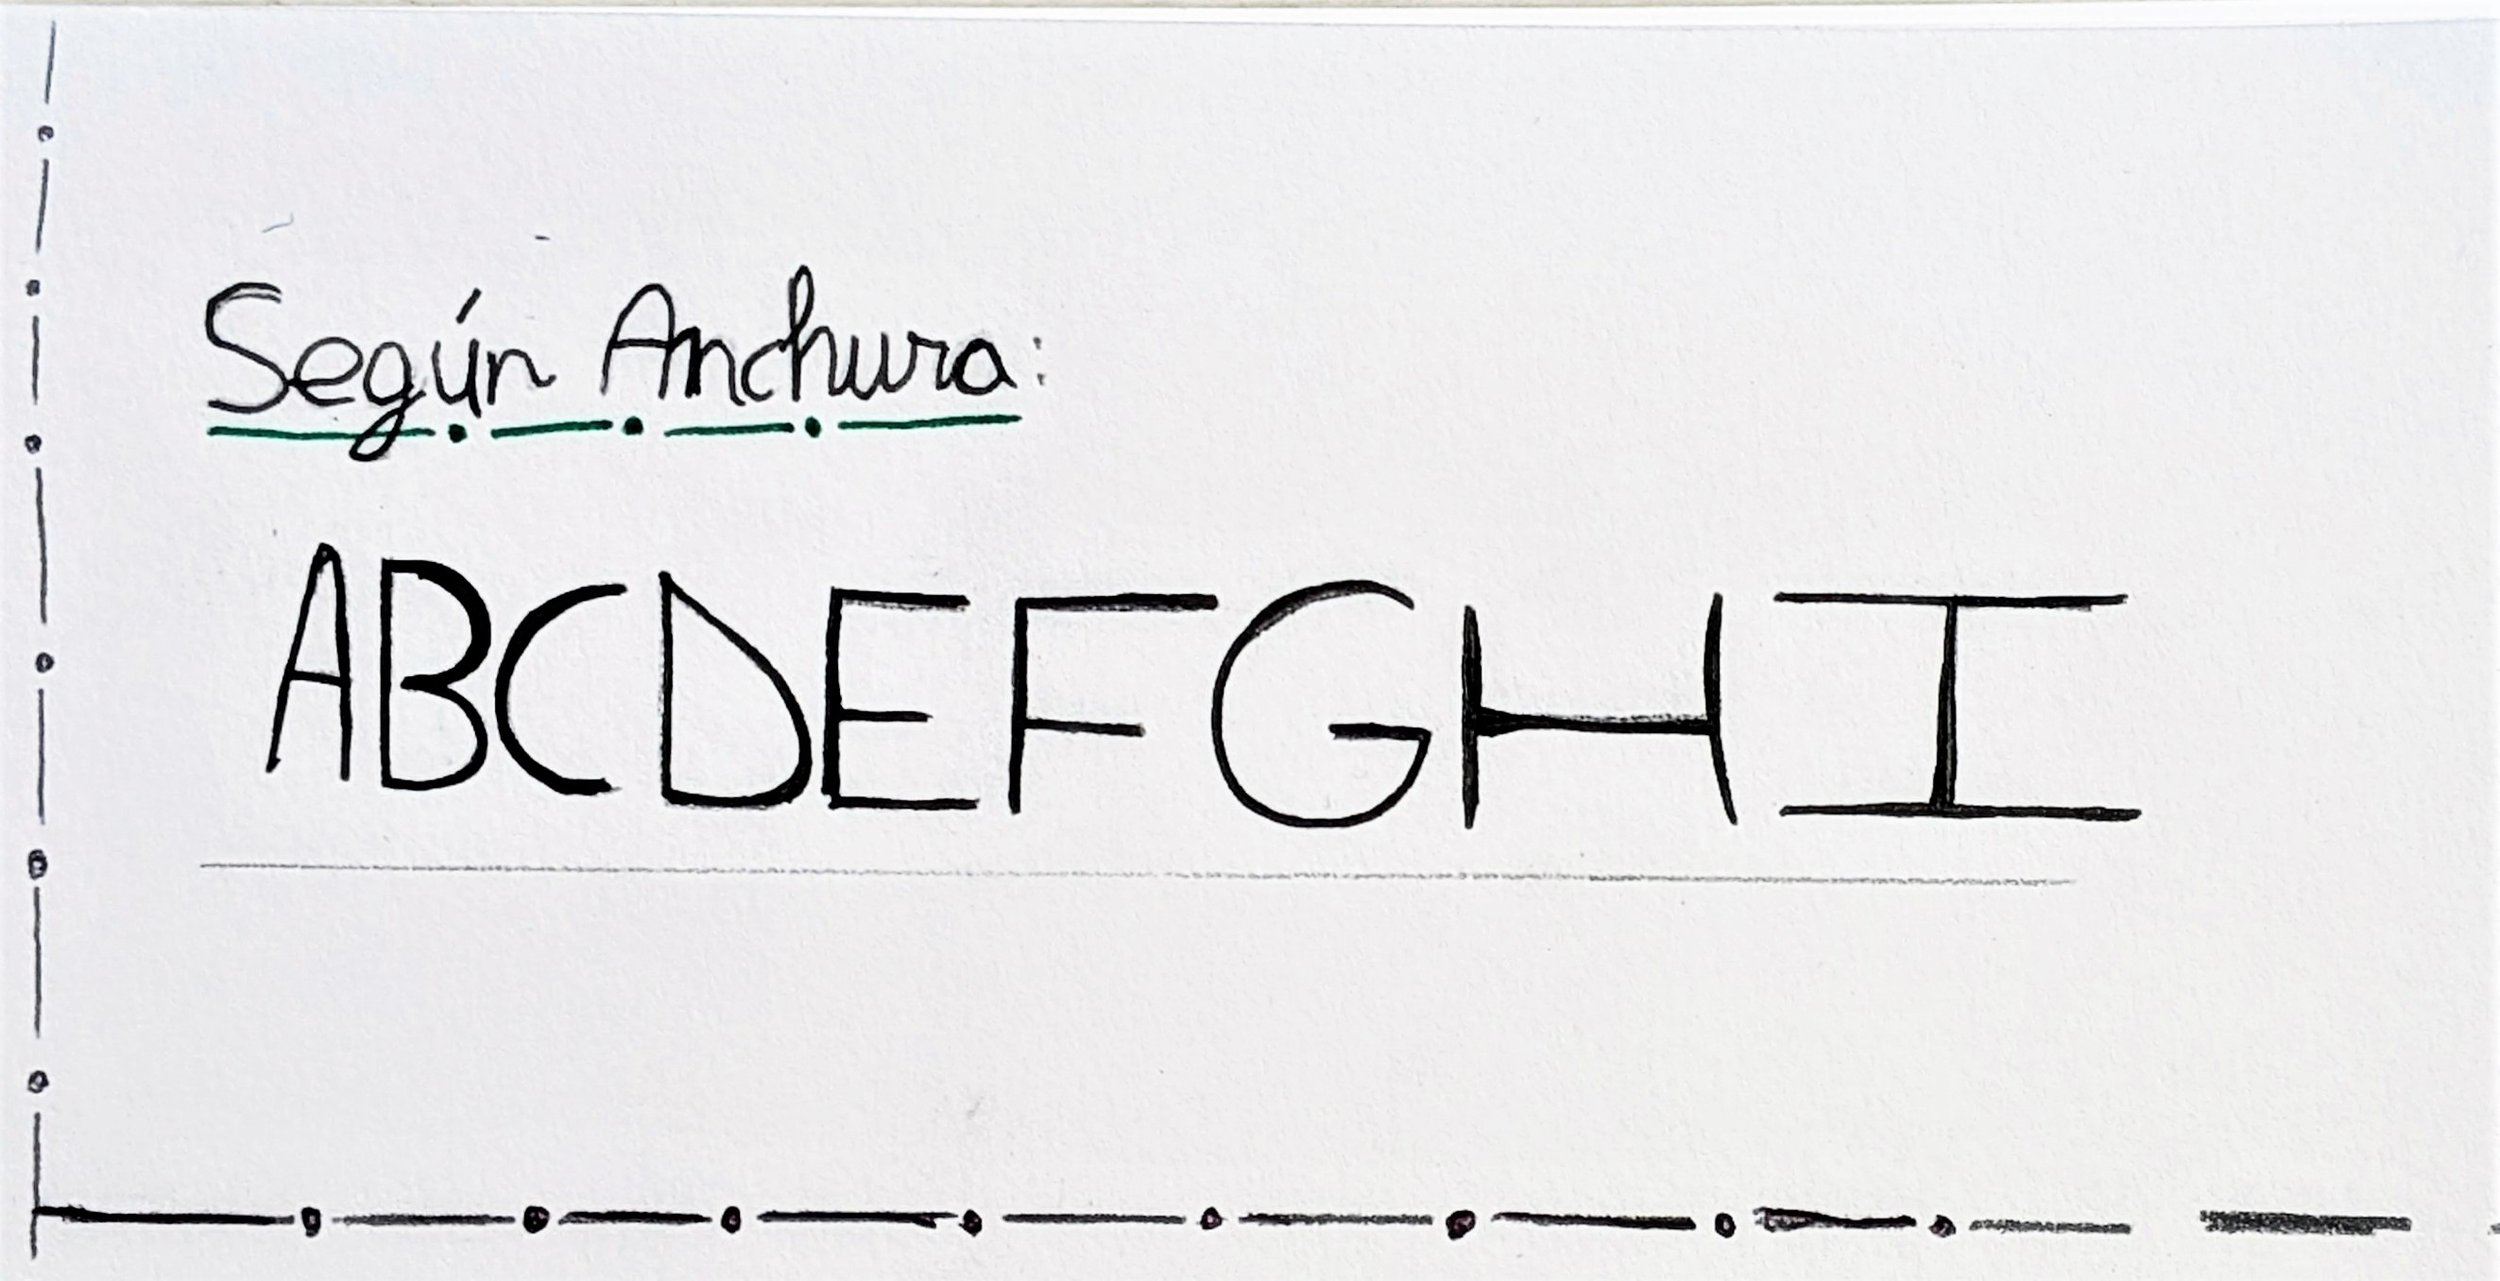 Según Anchura:
ABCDEFGHI